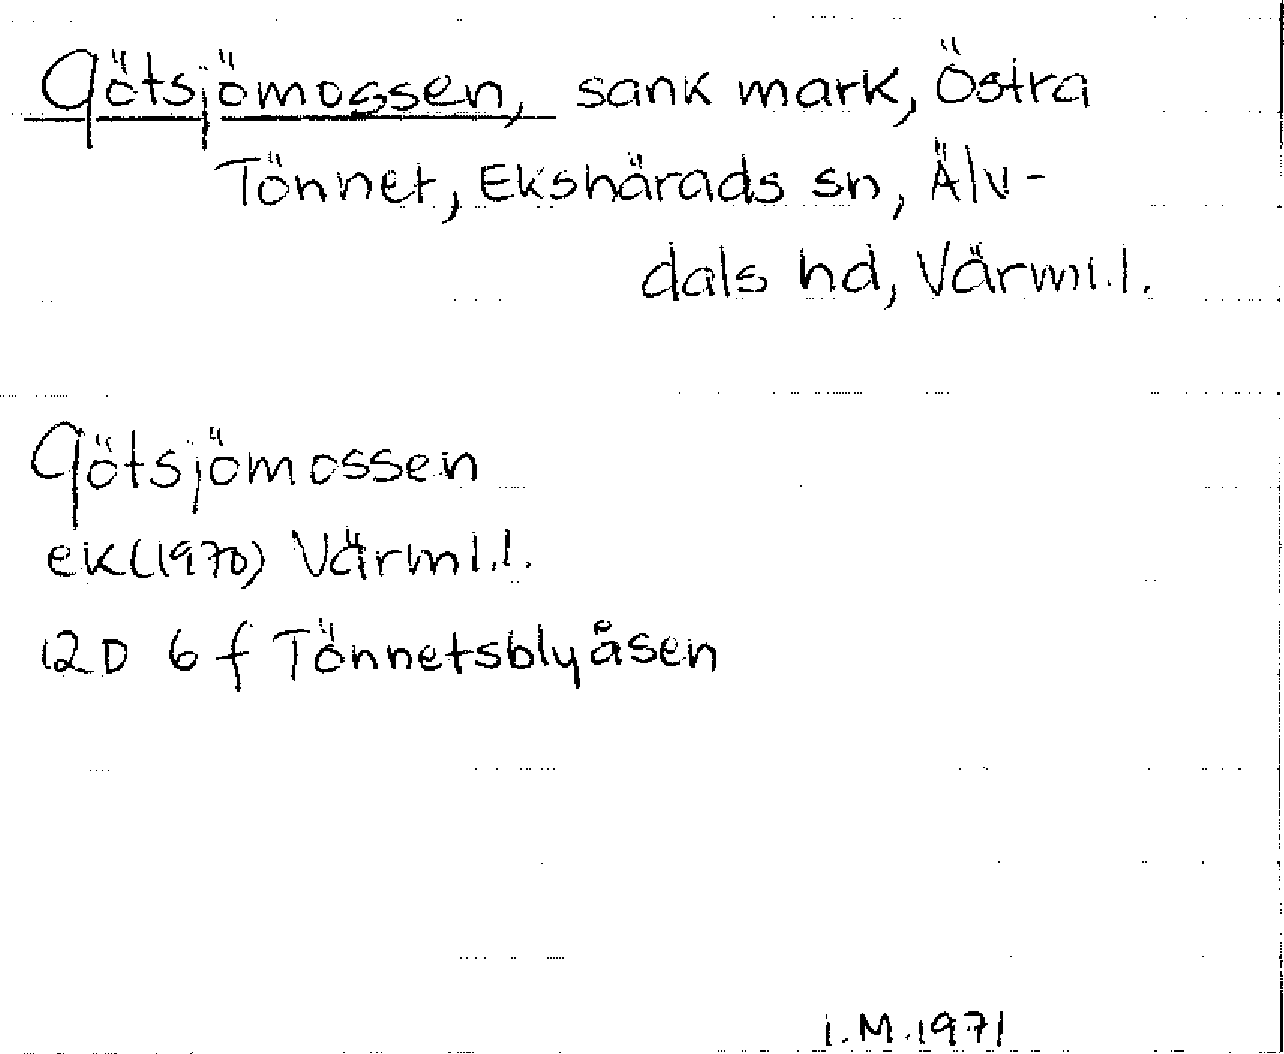 Götsjömossen, sank mark, Östra
Tönnet, Ekshärads sn, Älv-
dals hd, Värml.l.
Götsjömossen
ek(1970) Värml.l.
12D 6f Tönnetsblyåsen
I.M.1971